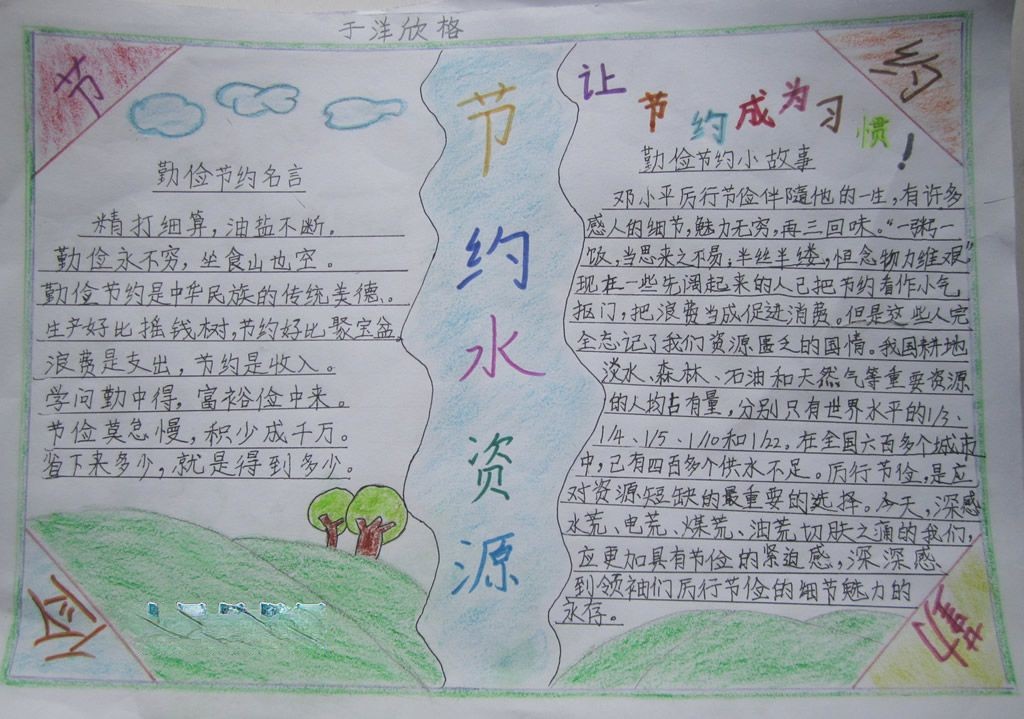 于洋欣格
节
约
俭
勤
节约水资源
勤俭节约名言
精打细算，油盐不断。
勤俭永不穷，坐食山也空。
勤俭节约是中华民族的传统美德。
生产好比摇钱树，节约好比聚宝盆。
浪费是支出，节约是收入。
学问勤中得，富裕俭中来。
节俭莫怠慢，积少成千万。
省下来多少，就是得到多少。
让节约成为习惯！
勤俭节约小故事
邓小平厉行节俭伴随他的一生，有许多
感人的细节，魅力无穷，再三回味。“一粥一
饭，当思来之不易，半丝半缕，恒念物力维艰”
现在一些先阔起来的人已把节约看作小气
抠门，把浪费当成促进消费。但是这些人完
全忘记了我们资源匮乏的国情。我国耕地
淡水、森林、石油和天然气等重要资源
的人均占有量，分别只有世界水平的1/3、
1/4、1/5、1/10和1/22。在全国六百多个城市
中，已有四百多个供水不足。厉行节俭，是应
对资源短缺的最重要的选择。今天，深感
水荒、电荒、煤荒、油荒切肤之痛的我们，
应更加具有节俭的紧迫感，深深感
到领袖们厉行节俭的细节魅力的
永存。